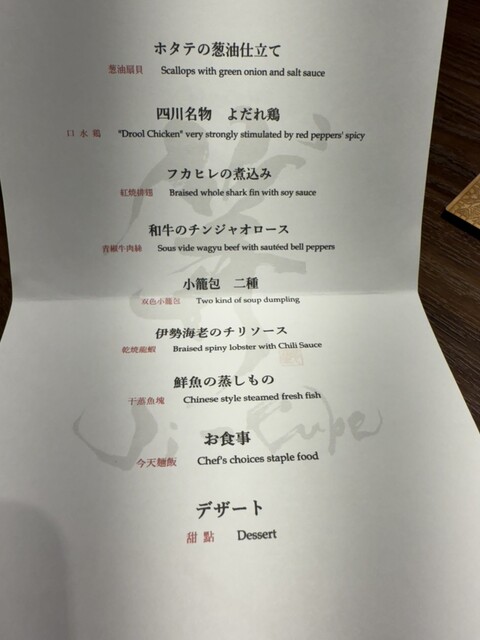 ホタテの葱油仕立て
葱油扇貝 Scallops with green onion and salt sauce
四川名物 よだれ鶏
口水鶏 "Drool Chicken" very strongly stimulated by red peppers' spicy
フカヒレの煮込み
紅焼排翅 Braised whole shark fin with soy sauce
和牛のチンジャオロース
青椒牛肉絲 Sous vide wagyu beef with sautéed bell peppers
小籠包 二種
双色小籠包 Two kind of soup dumpling
伊勢海老のチリソース
乾焼龍蝦 Braised spiny lobster with Chili Sauce
鮮魚の蒸しもの
干蒸魚塊 Chinese style steamed fresh fish
お食事
今天麵飯 Chef's choices staple food
デザート
甜點 Dessert